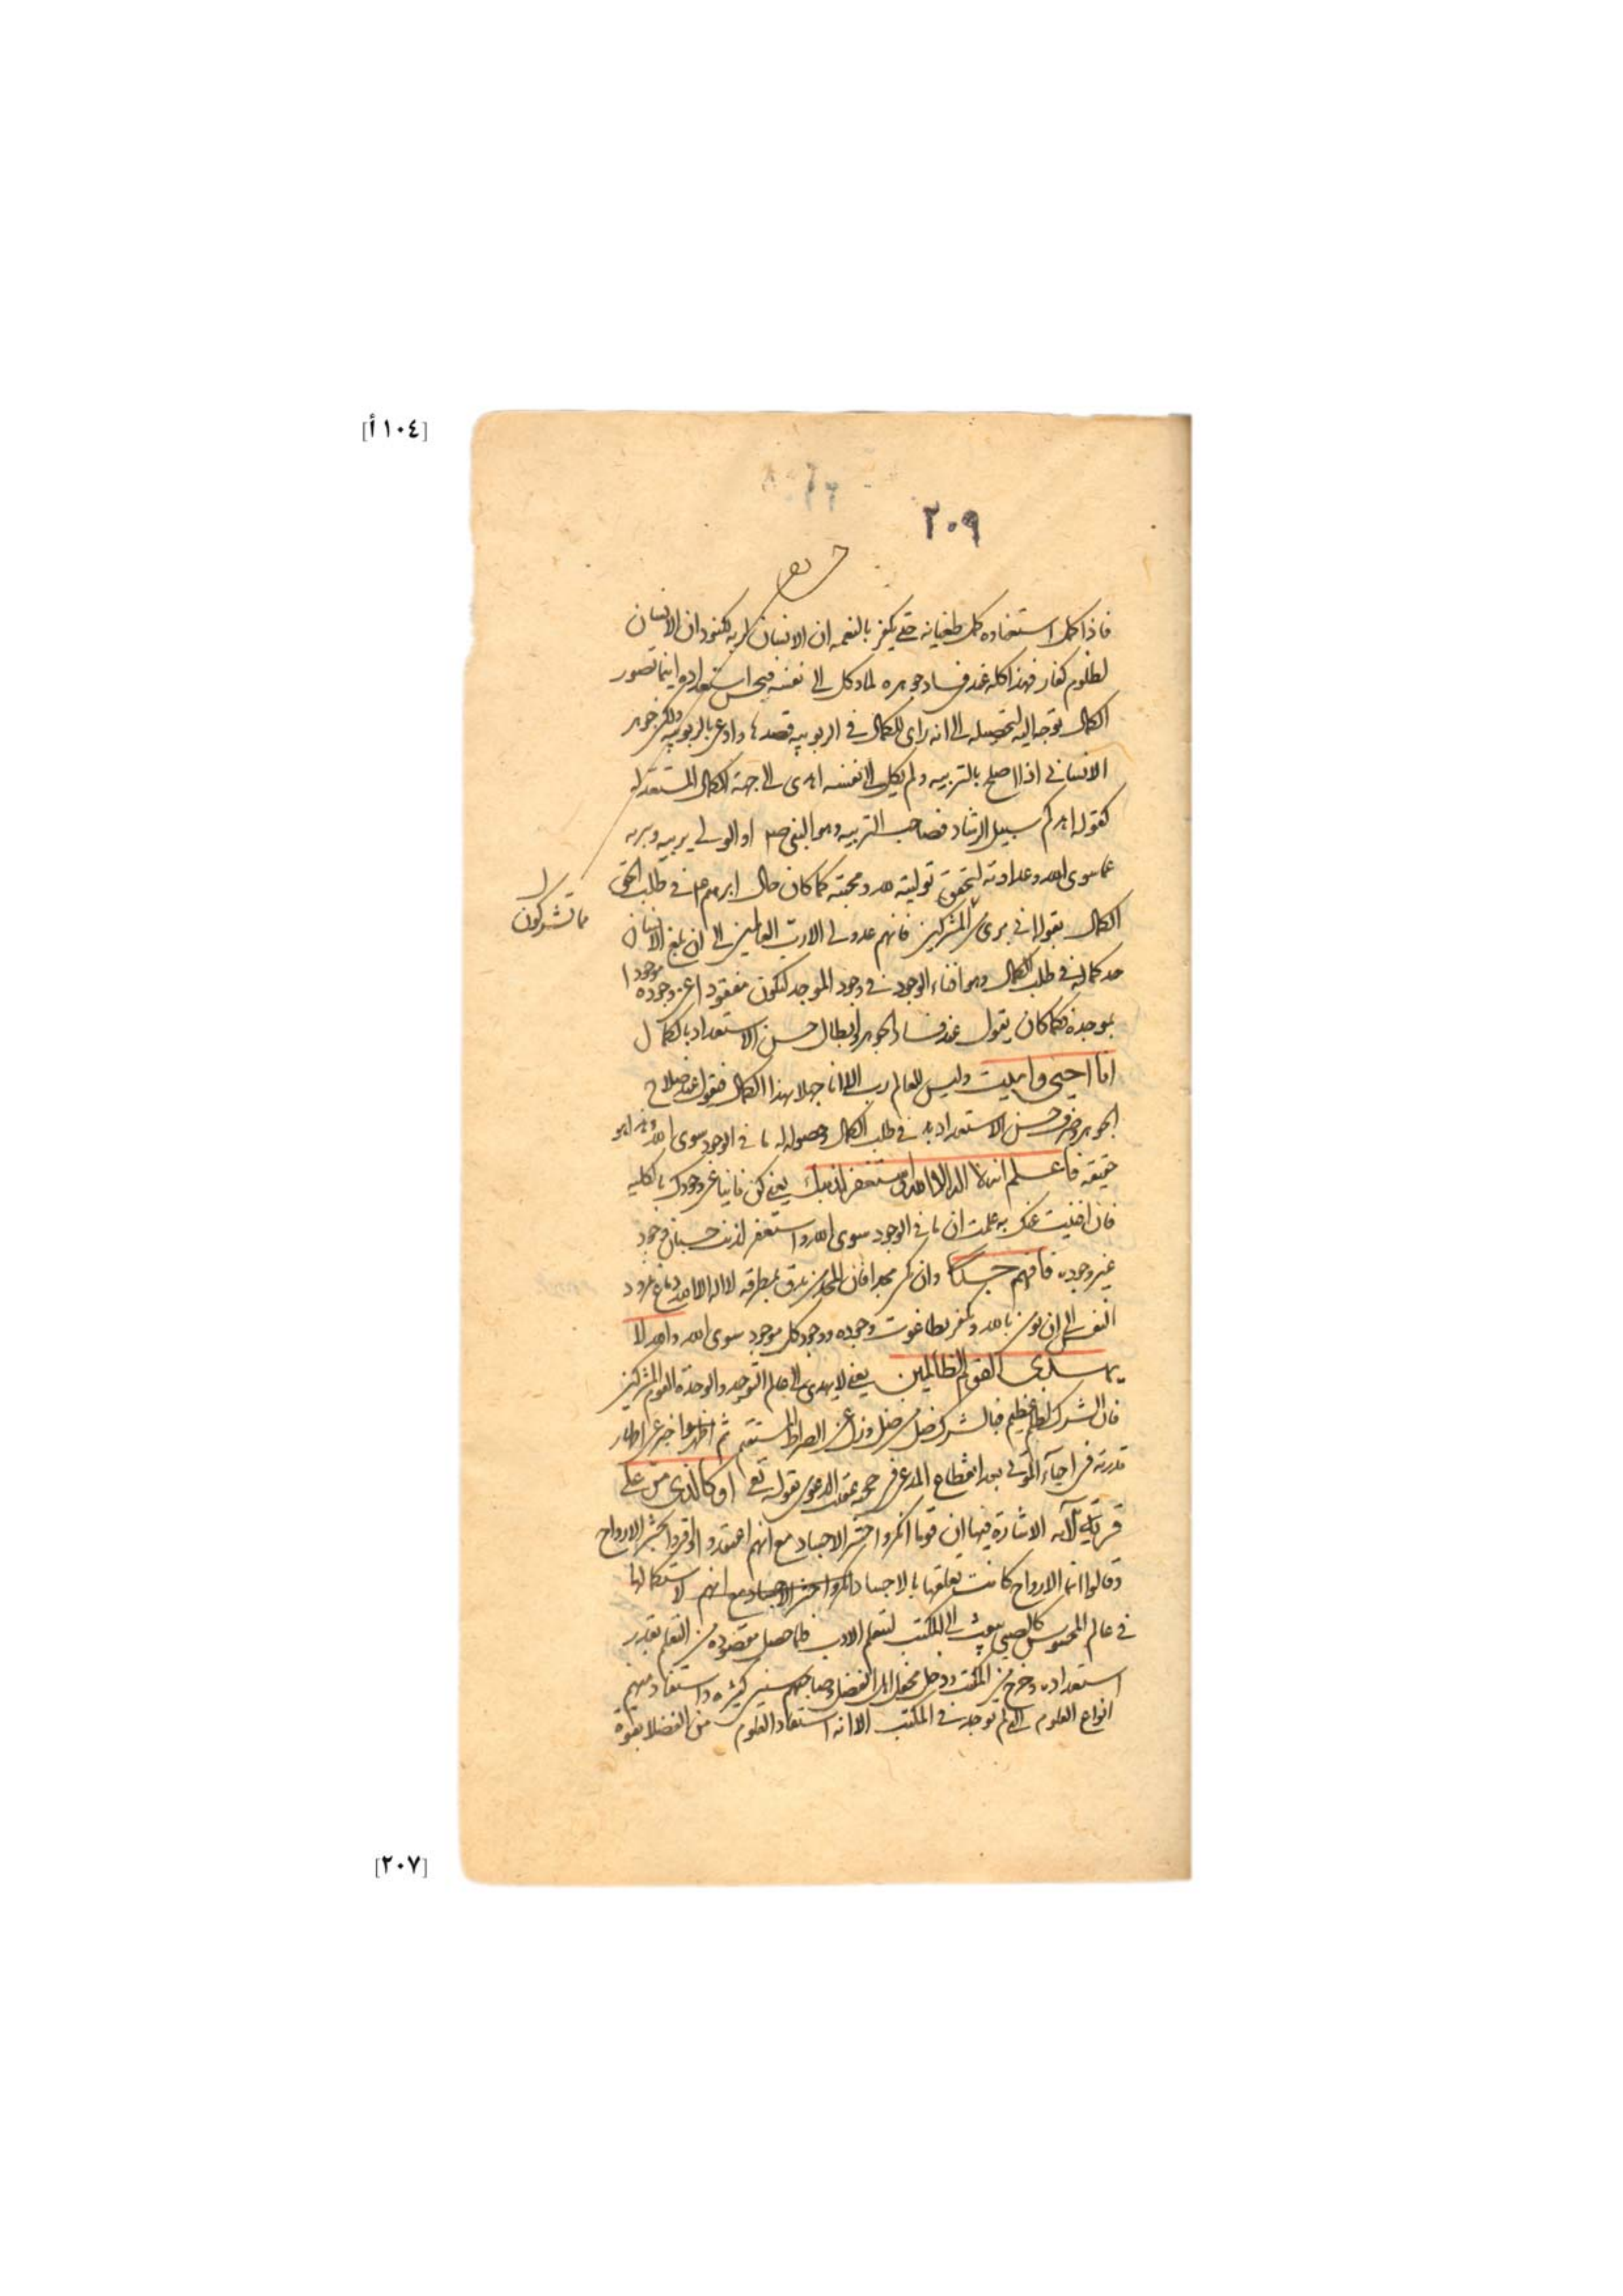 [١٠٤أ]
٢٠٩
فاذا كمل استعداده كمل طغيانه حتى يكفر بالنعمه ان الانسان لربه لكنود ان الانسان
لظلوم كفار فهذا كله عند فساد جوهره لما وكل الى نفسه فيحس استعداده اينما تصور
الكمال توجه اليه لتحصيله الى انه راى الكمال فى الربوبيه فقصدها وادعى بالربوبيه ولكن جوهر
الانسانى اذا اصلح بالتربيه ولم يكل الى نفسه اهدى الى جهة الكمال المستعد له
كقوله اهدكم سبيل الرشاد فصاحب التربيه وهو النبى او الولى يربيه ويبريه
عما سوى الله وعداوته لتحقق توليته لله ومحبته كما كان حال ابرهيم فى طلب
الكمال بقوله انى برىء من المشركين فانهم عدو لى الا رب العالمين الى ان بلغ الانسان
مما تشركون
حد كماله فى طلب الكمال وهو افناء الوجود فى وجود الموجد ليكون مفقودا عن وجوده موجودا
بموجده فكما كان يقول عند فساد الجوهر وابطال حسن الاستعداد بالكمال
انا احيى واميت وليس للعالم رب الا انا جهلا بهذا الكمال فيقول عند صلاح
الجوهر وصرف حسن الاستعداد فى طلب الكمال وحصوله له ما فى الوجود سوى الله وهذا هو
حقيقة فاعلم انه لا اله الا الله واستغفر لذنبك يعنى كن فانيا عن وجودك بالكليه
فان افنيت عنك به علمت ان ما فى الوجود سوى الله واستغفر لذنب حسبان وجود
غير وجوده فافهم جدا وان مجدا فان يدق بمطرقة لا اله الا الله دماغ نمرود
النفس الى ان يؤمن بالله ويكفر بطاغوت وجوده ووجود كل موجود سوى الله والله لا
يهدى القوم الظالمين يعنى لا يهدى الى عالم التوحيد والوحدة القوم المشركين
فان الشرك لظلم عظيم فبالشرك ضل من ضل وزاغ عن الصراط المستقيم ثم اخبر عن اظهار
قدرته فى احياء الموتى بعد انقطاع المدعى فى حجه عقيب الدعوى بقوله تع او كالذى مر على
قرية الآيه الاشارة فيها ان قوما انكروا حشر الاجساد مع انهم اعتقدوا واقروا بحشر الارواح
وقالوا انما الارواح كانت تعلقها بالاجساد انكروا حشر الاجساد مع انهم لاستكمالها
فى عالم المحسوس كالصبى يبعث الى المكتب ليتعلم الادب فلما حصل مقصوده من التعلم بقدر
استعداده وخرج من المكتب ودخل محفل اهل الفضل وصاحبهم سنين كثيره واستفاد منهم
انواع العلوم التى لم توجد فى المكتب الا انه استفاد العلوم من الفضلا بقوة
[٢٠٧]